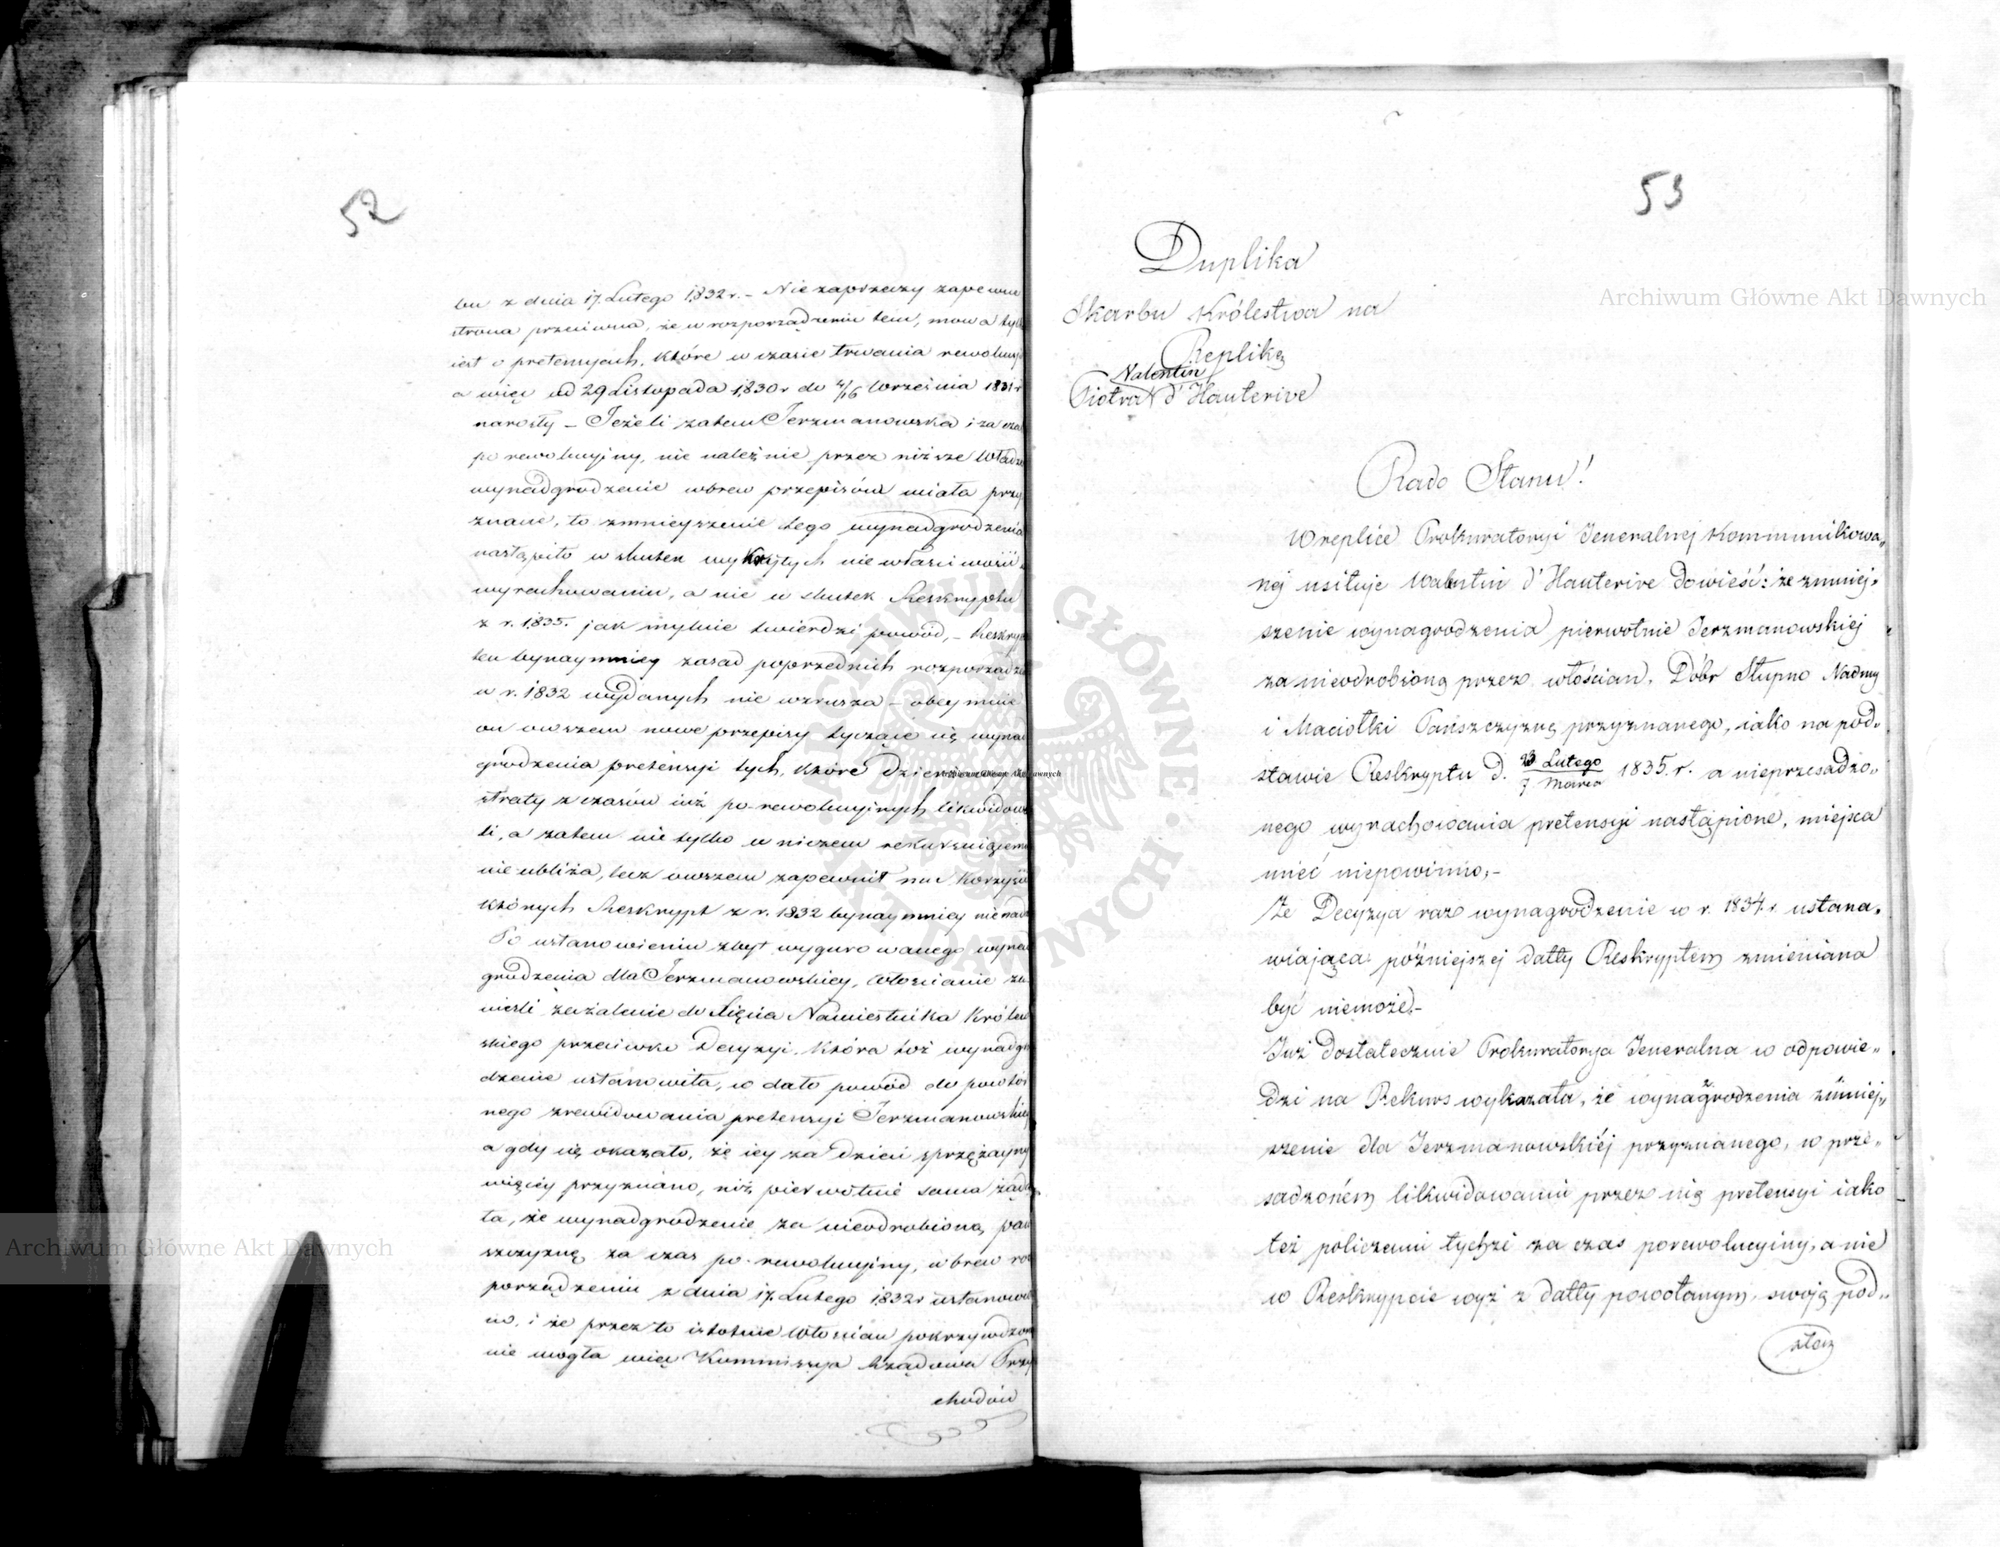 52
bu z dnia 17. Lutego 1832 r. – Nie zaprzeczy zapewne
strona przeciwna, że w rozporządzeniu tem, mowa tyl
iest o pretensyach, które w czasie trwania rewolucyi
a więc od 29 Listopada 1830 r do 4/16 Września 1831 r
narosły – Jeżeli zatem Jerzmanowska i za czas
po rewolucyiny, nie należnie przez niższe Władze
wynadgrodzenie wbrew przepisów miała przy
znane, to zmnieyszenie tego wynadgrodzenia
nastąpiło w skutek wykrytych nie właściwości w
wyrachowaniu, a nie w skutek Reskryptu
z r. 1835. jak mylnie twierdzi powód, – Reskrypt
ten bynaymniey zasad poprzednich rozporządzeń
w r. 1832 wydanych nie wzrusza – obeymuie
on owszem nowe przepisy tyczące się wyna
grodzenia pretensyi tych, które dzierżawcy
straty z czasów iuż po-rewolucyinych likwidowa
li, a zatem nie tylko w niczem rekursuiącemu
nie ubliża, lecz owszem zapewnił mu korzyści
których Reskrypt z r. 1832 bynaymniey nie nada
Po ustanowieniu zbyt wygurowanego wyna
grodzenia dla Jerzmanowskiey, Włościanie za
nieśli zażalenie do Xięcia Namiestnika Królew
skiego przeciwko Decyzyi, która toż wynadgro
dzenie ustanowiła, co dało powód do powtór
nego zrewidowania pretensyi Jerzmanowskiey
a gdy się okazało, że iey za dzień sprzężayny
więcéy przyznano, niż pierwotnie sama żąda
ła, że wynadgrodzenie za nieodrobioną pań
szczyznę za czas po-rewolucyiny, wbrew roz
porządzeniu z dnia 17. Lutego 1832 r ustanowio
no, i że przez to istotnie Włościan pokrzywdzono
nie mogła więc Kommissya Rządowa Przy
chodów
53
Duplika
Skarbu Królestwa na
Replikę
Valentin
Piotra d'Hauterive
Rado Stanu!
W replice Prokuratoryi Jeneralnej kommunikowa„
nej usiłuje Valentin d'Hauterive dowieść: że zmniej„
szenie wynagrodzenia pierwotnie Jerzmanowskiej
za nieodrobioną przez włościan, Dóbr Słupno Nadmy
i Maciołki Pańszczyznę przyznanego, iako na pod„
stawie Reskryptu d. 23 Lutego / 7 Marca 1835. r. a nieprzesadzo„
nego wyrachowania pretensyi nastąpione, miejsca
mieć niepowinno,–
Że Decyzya raz wynagrodzenie w r. 1834 r. ustana„
wiająca późniejszej datty Reskryptem zmieniana
być niemoże,–
Już dostatecznie Prokuratorya Jeneralna w odpowie„
dzi na Rekurs wykazała, że wynagrodzenia zmniej„
szenie dla Jerzmanowskiéj przyznanego, w prze„
sadzoném likwidowaniu przez nią pretensyi iako
też policzeniu tychże za czas porewolucyiny, a nie
w Reskrypcie wyż z datty powołanym, swoją pod„
staw
Archiwum Główne Akt Dawnych
Archiwum Główne Akt Dawnych
ARCHIWUM GŁÓWNE AKT DAWNYCH